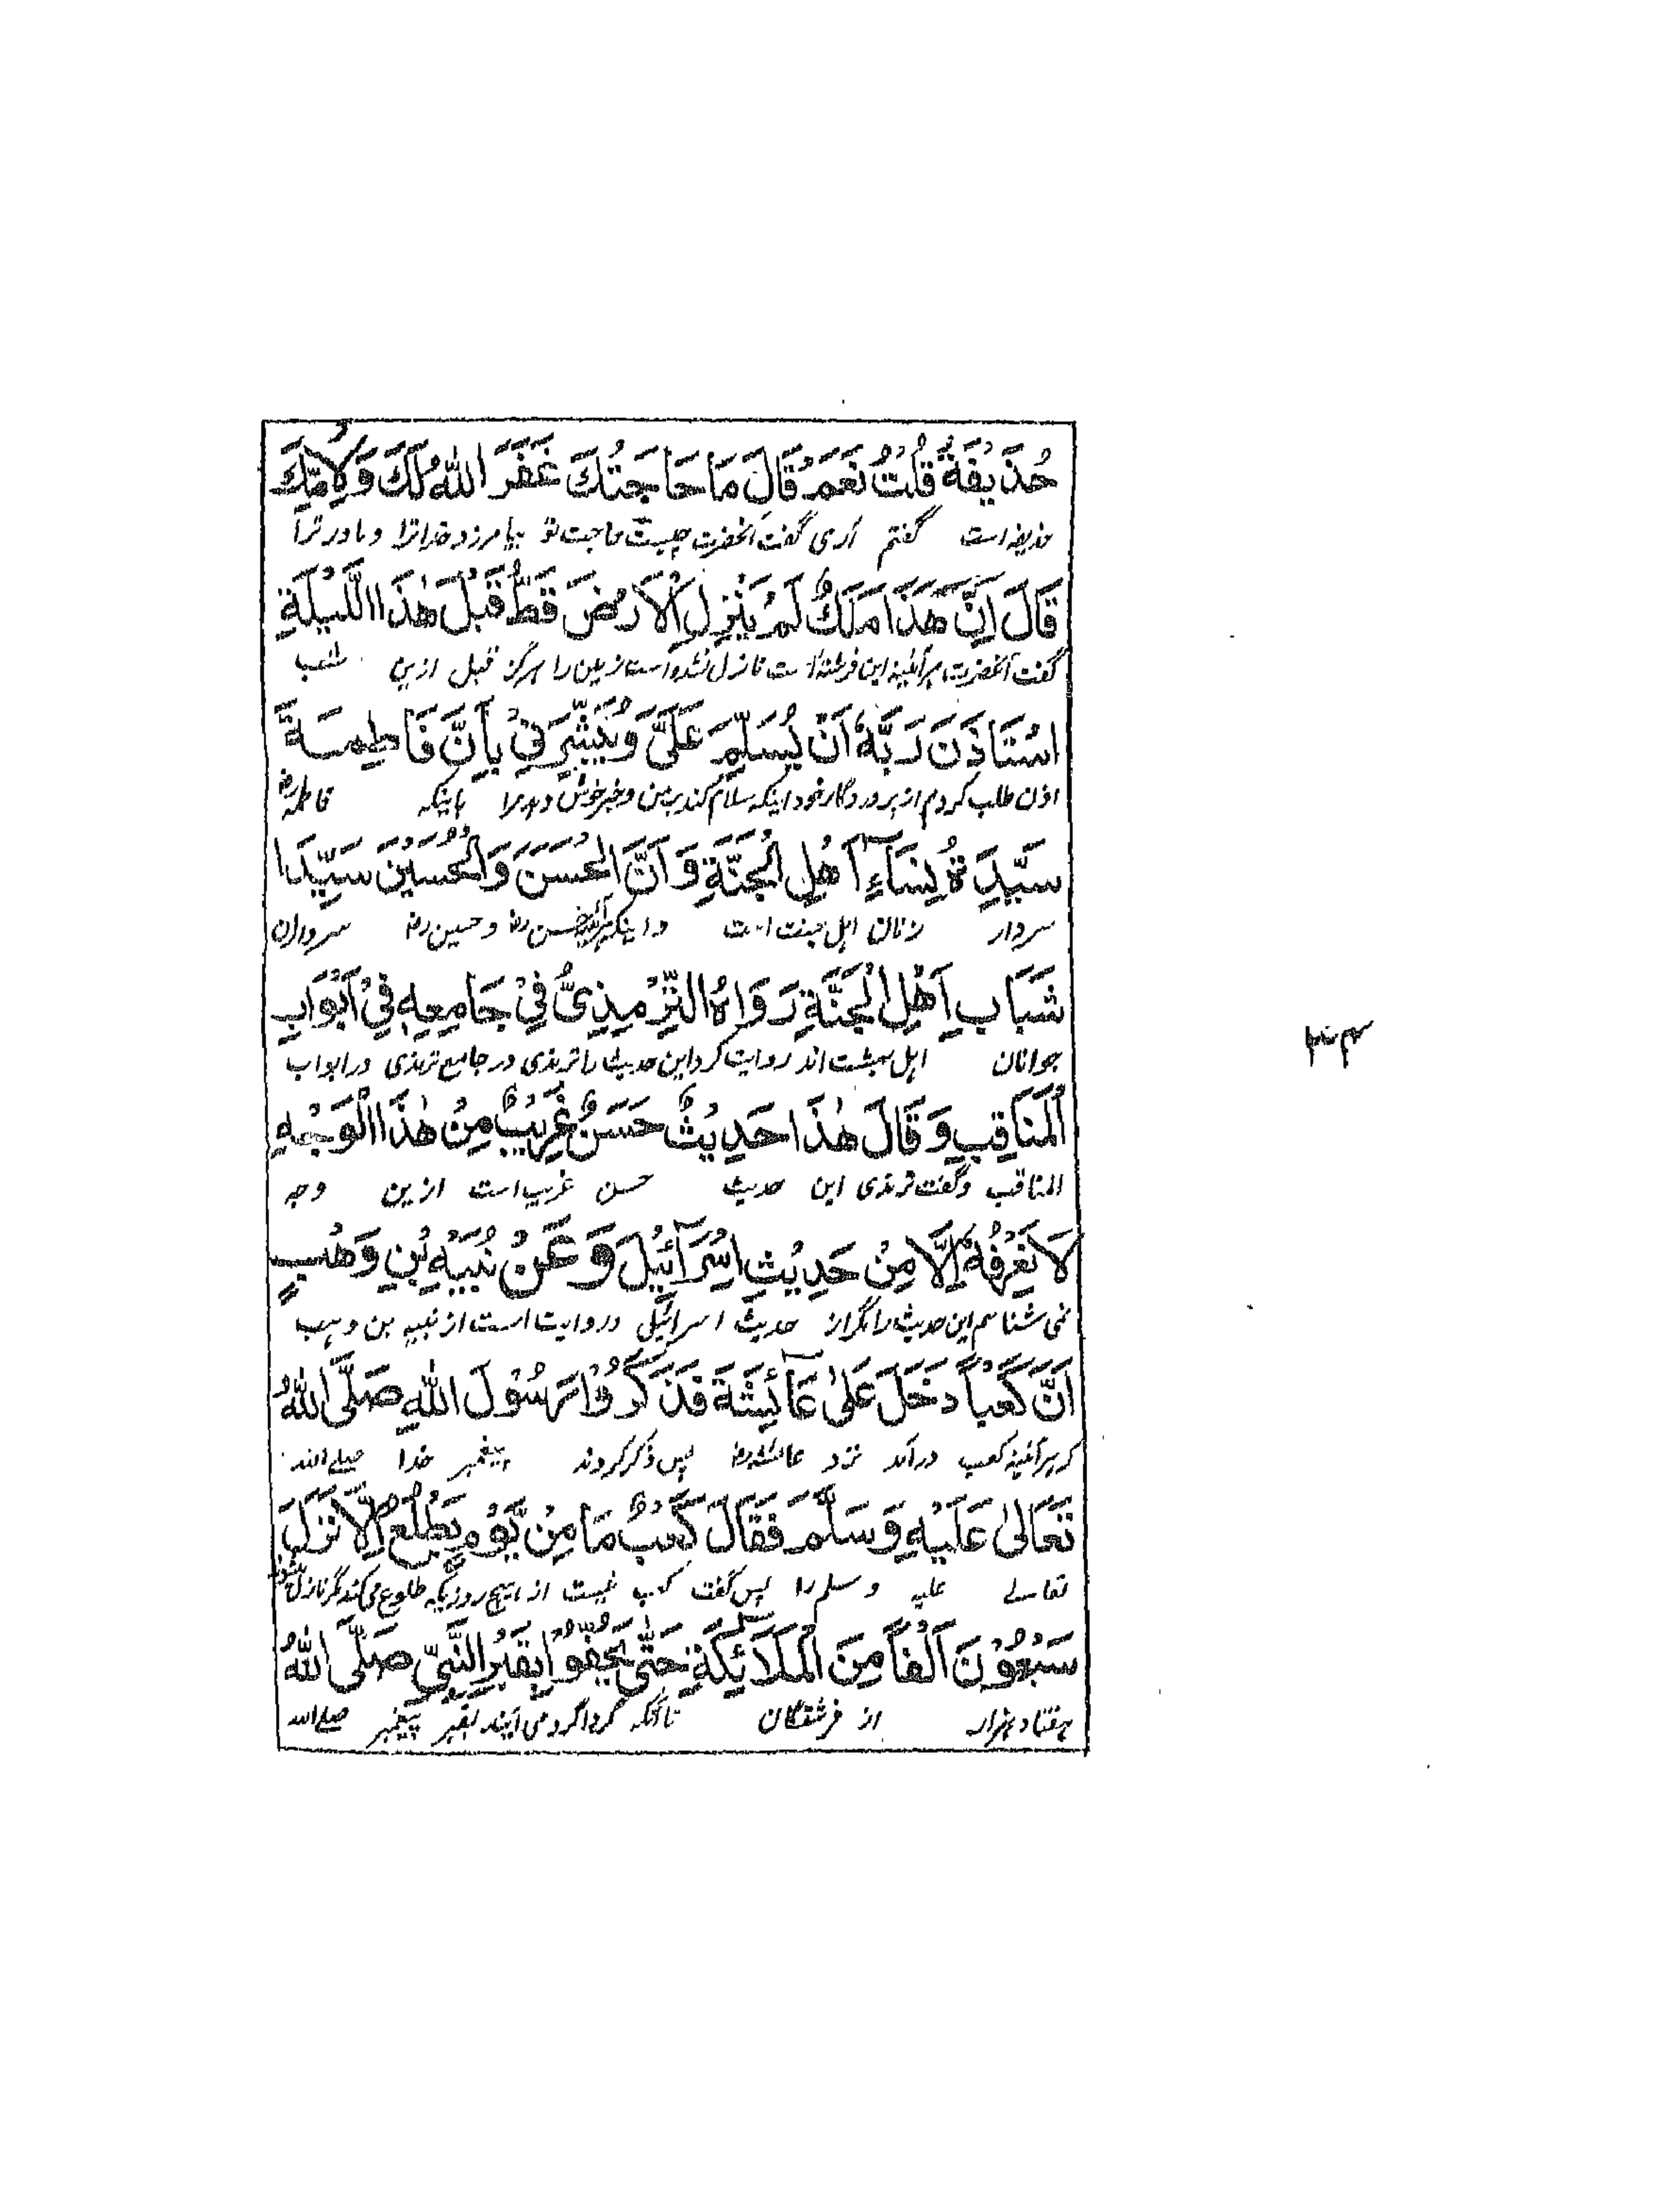 حُذَيْفَةُ قُلْتُ نَعَمْ قَالَ مَا حَاجَتُكَ غَفَرَ اللهُ لَكَ وَلِأُمِّكَ
حذیفه است گفتم آری گفت آنحضرت چیست حاجت تو بیامرزد خدا ترا و مادر ترا
قَالَ اِنَّ هٰذَا مَلَكٌ لَمْ يَنْزِلِ الْاَرْضَ قَطُّ قَبْلَ هٰذَا اللَّيْلَةِ
گفت آنحضرت هرآئینه این فرشته است نازل نشده است زمین را هرگز قبل ازین شب
اسْتَاذَنَ رَبَّهٗ اَنْ يُسَلِّمَ عَلَيَّ وَيُبَشِّرَنِيْ بِاَنَّ فَاطِمَةَ
اذن طلب کردم از پروردگار خود اینکه سلام کند بر من و خبر خوش دهد مرا باینکه فاطمه رض
سَيِّدَةُ نِسَآءِ اَهْلِ الْجَنَّةِ وَاَنَّ الْحَسَنَ وَالْحُسَيْنَ سَيِّدَا
سردار زنان اهل جنت است و اینکه حسن رض و حسین رض سرداران
شَبَابِ اَهْلِ الْجَنَّةِ رَوَاهُ التِّرْمِذِيُّ فِيْ جَامِعِهٖ فِيْ اَبْوَابِ
جوانان اهل بهشت اند روایت کرد این حدیث را ترمذی در جامع ترمذی در ابواب
الْمَنَاقِبِ وَقَالَ هٰذَا حَدِيْثٌ حَسَنٌ غَرِيْبٌ مِنْ هٰذَا الْوَجْهِ
المناقب و گفت ترمذی این حدیث حسن غریب است ازین وجه
لَا نَعْرِفُهٗ اِلَّا مِنْ حَدِيْثِ اِسْرَآئِيْلَ وَعَنْ نُبَيْهِ بْنِ وَهْبٍ
نمی شناسم این حدیث را مگر از حدیث اسرائیل و روایت است از نبیه بن وهب
اَنَّ كَعْبًا دَخَلَ عَلٰى عَآئِشَةَ فَذَكَرُوْا رَسُوْلَ اللهِ صَلَّى اللهُ
که هرآئینه کعب درآمد نزد عائشه رض پس ذکر کردند پیغمبر خدا صلے الله
تَعَالٰى عَلَيْهِ وَسَلَّمَ فَقَالَ كَعْبٌ مَا مِنْ يَوْمٍ يَطْلُعُ اِلَّا نَزَلَ
تعالے علیه وسلم را پس گفت کعب نیست از هیچ روزیکه طلوع میکند مگر نازل میشوند
سَبْعُوْنَ اَلْفًا مِنَ الْمَلَآئِكَةِ حَتّٰى يَحُفُّوْا بِقَبْرِ النَّبِيِّ صَلَّى اللهُ
هفتاد هزار از فرشتگان تا آنکه گرداگرد می آیند بقبر پیغمبر صلے الله